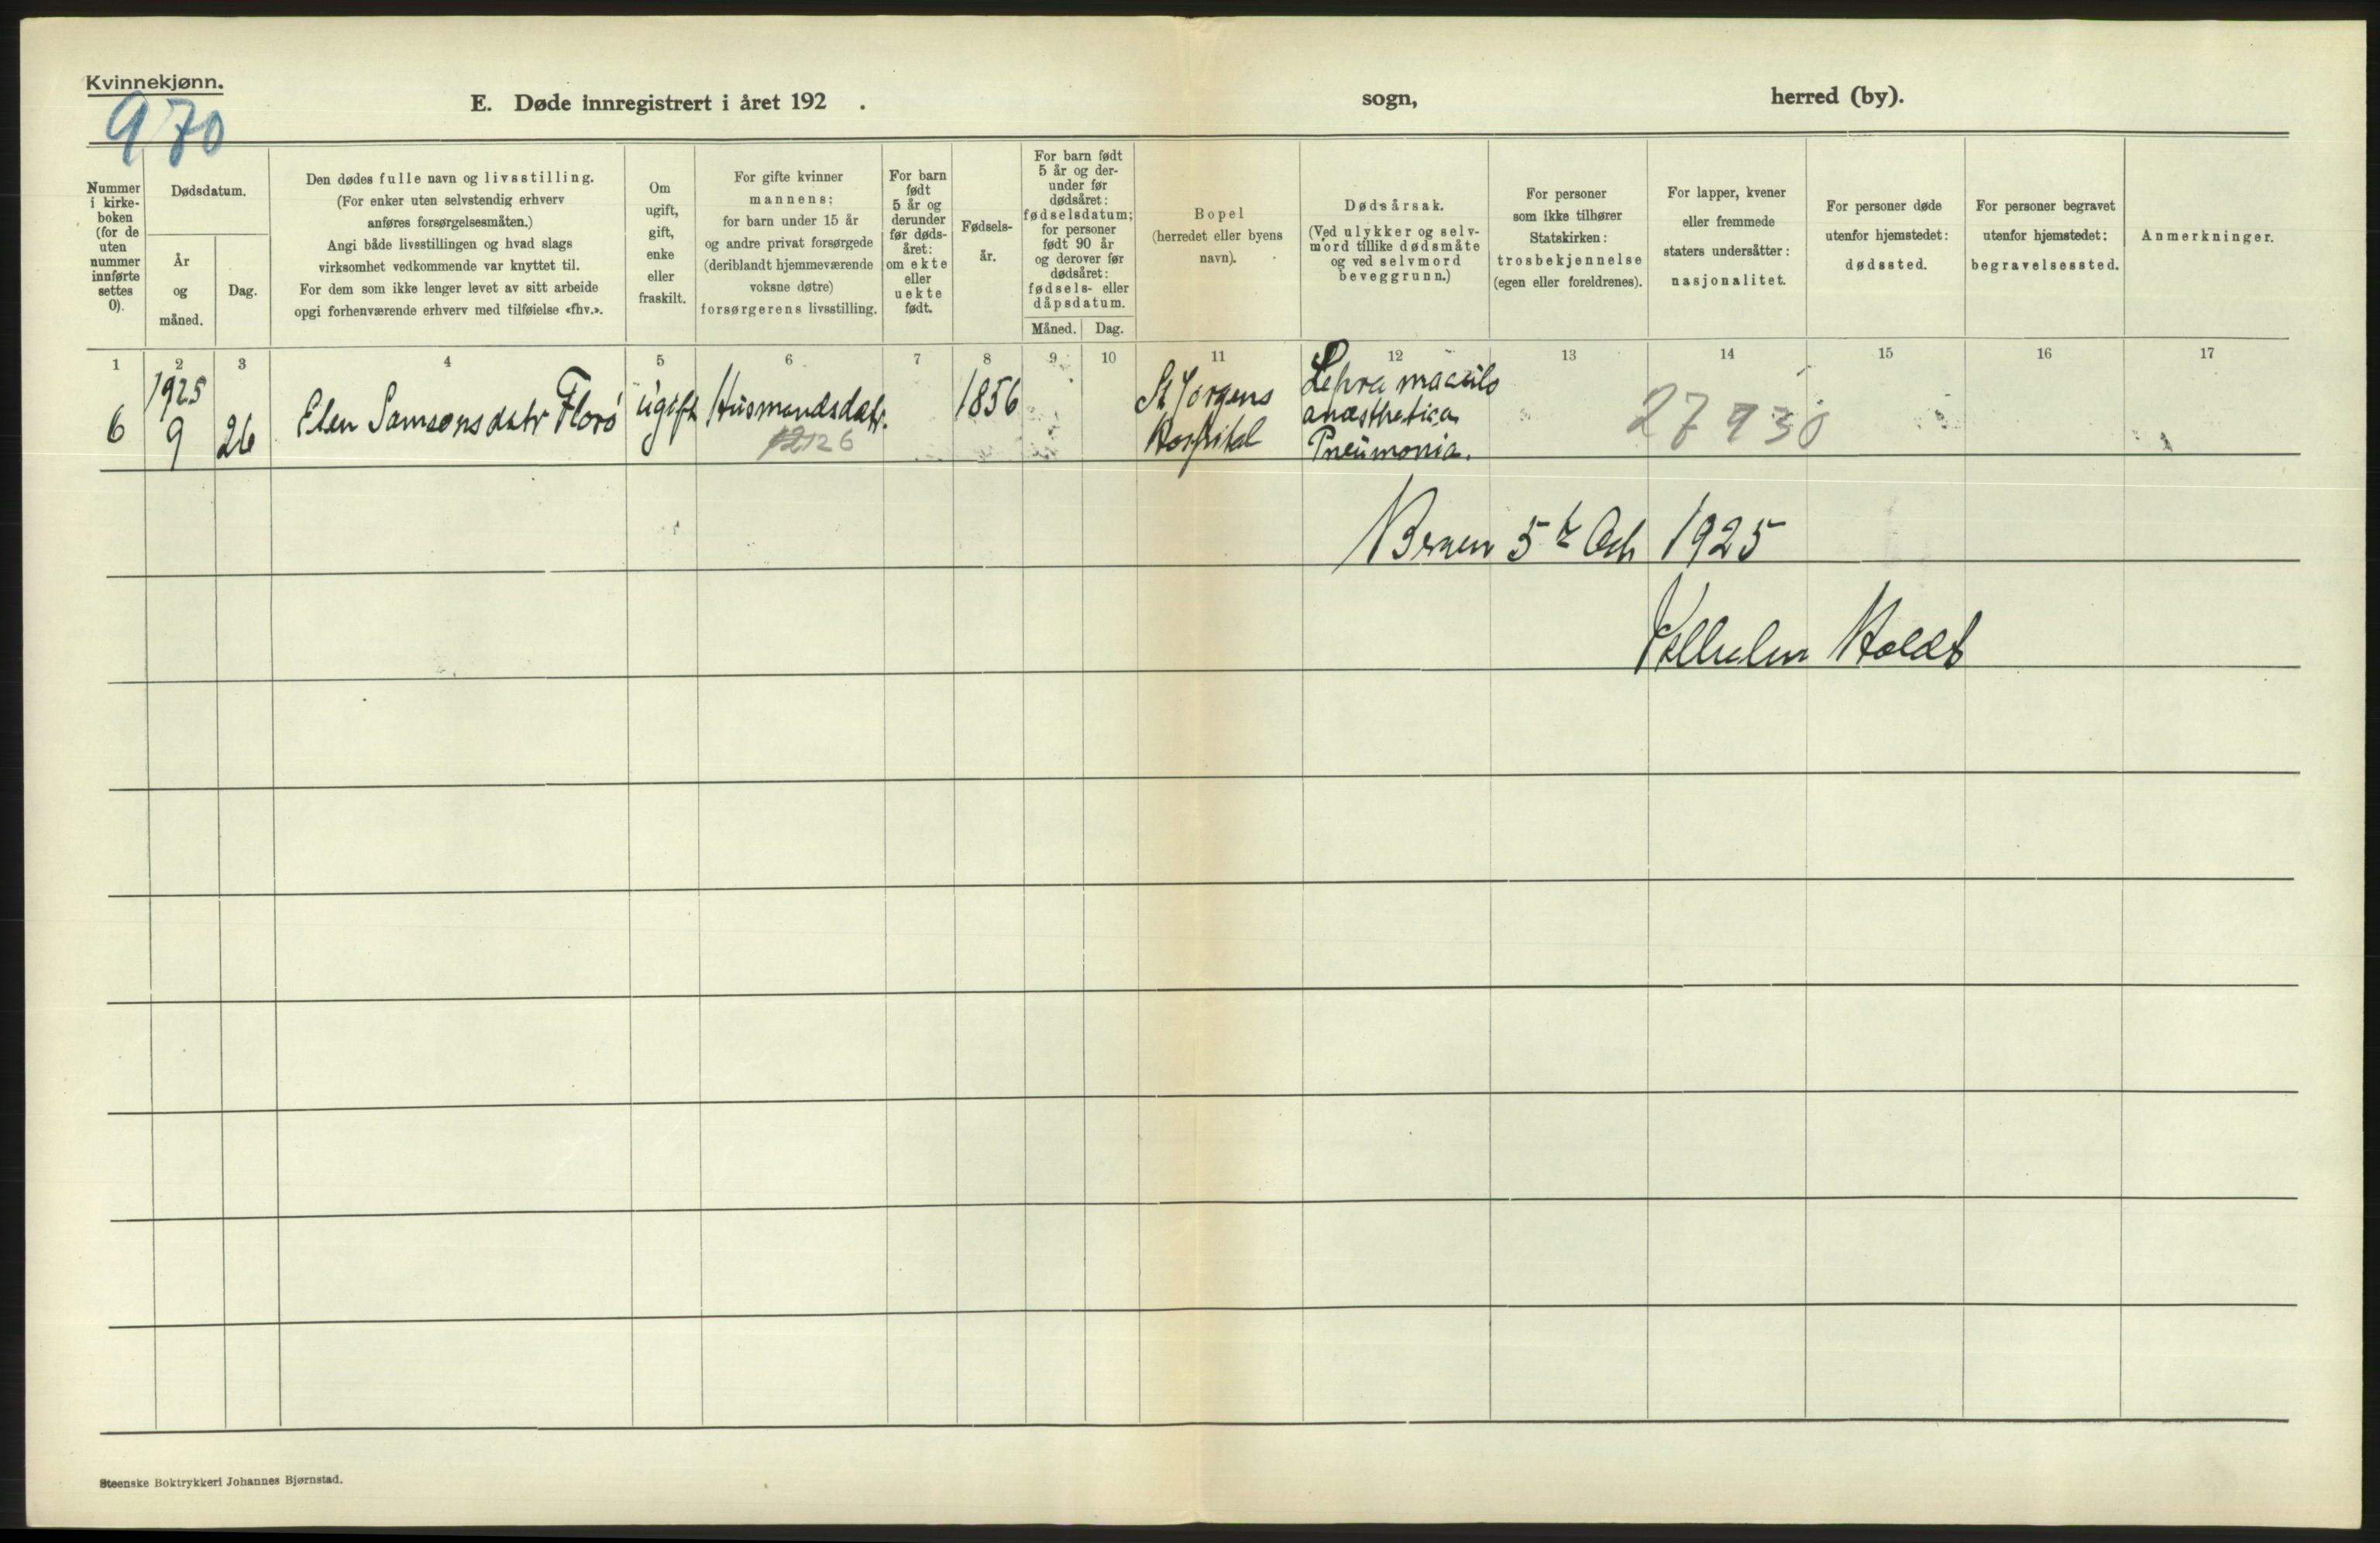 Kvinnekjønn.
970
E. Døde innregistrert i året 192 .
sogn,
herred (by).
Nummer
i kirke-
boken
(for de
uten
nummer
innførte
settes
0).
Dødsdatum.
År
og
måned.
Dag.
Den dødes fulle navn og livsstilling.
(For enker uten selvstendig erhverv
anføres forsørgelsesmåten.)
Angi både livsstillingen og hvad slags
virksomhet vedkommende var knyttet til.
For dem som ikke lenger levet av sitt arbeide
opgi forhenværende erhverv med tilføielse «fhv.».
Om
ugift,
gift,
enke
eller
fraskilt.
For gifte kvinner
mannens;
for barn under 15 år
og andre privat forsørgede
(deriblandt hjemmeværende
voksne døtre)
forsørgerens livsstilling.
For barn
født
5 år og
derunder
før døds-
året:
om ekte
eller
uekte
født.
Fødsels-
år.
For barn født
5 år og der-
under før
dødsåret:
fødselsdatum;
for personer
født 90 år
og derover før
dødsåret:
fødsels- eller
dåpsdatum.
Måned. Dag.
Bopel
(herredet eller byens
navn).
Dødsårsak.
(Ved ulykker og selv-
mord tillike dødsmåte
og ved selvmord
beveggrunn.)
For personer
som ikke tilhører
Statskirken:
trosbekjennelse
(egen eller foreldrenes).
For lapper, kvener
eller fremmede
staters undersåtter:
nasjonalitet.
For personer døde
utenfor hjemstedet:
dødssted.
For personer begravet
utenfor hjemstedet:
begravelsessted.
Anmerkninger.
1 2 3 4 5 6 7 8 9 10 11 12 13 14 15 16 17
1925
6 9 26 Elen Samsonsdatr Florø ugift Husmandsdatr. 1856
12126
St Jørgens
Hospital
Lepra maculo
anæsthetica
Pneumonia.
27930
Bergen 5t Oct 1925
Vilhelm Holdt
Steenske Boktrykkeri Johannes Bjørnstad.